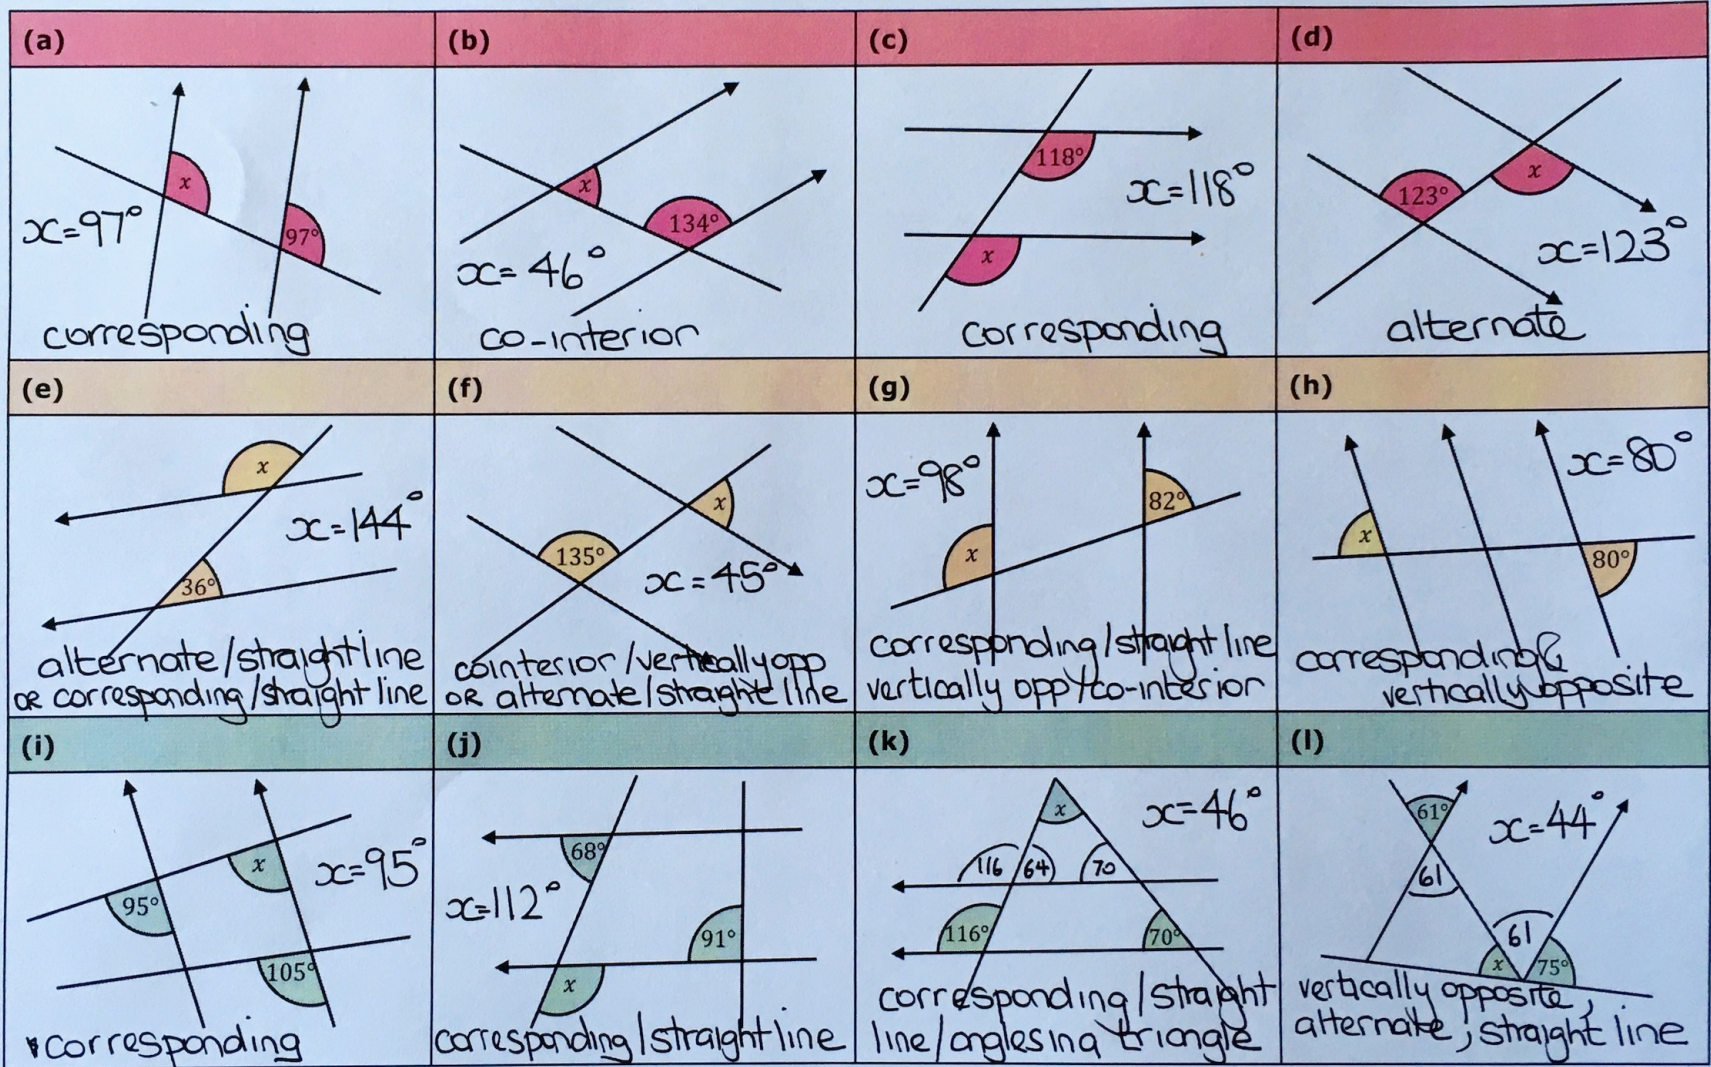 (a)
x
97°
x=97°
corresponding
(b)
x
134°
x=46°
co-interior
(c)
118°
x
x=118°
corresponding
(d)
123°
x
x=123°
alternate
(e)
x
36°
x=144°
alternate/straight line
OR corresponding/straight line
(f)
x
135°
x=45°
cointerior/vertically opp
OR alternate/straight line
(g)
x=98°
82°
x
corresponding/straight line
vertically opp/co-interior
(h)
x=80°
x
80°
corresponding &
vertically opposite
(i)
x
95°
105°
x=95°
corresponding
(j)
68°
x=112°
91°
x
corresponding/straight line
(k)
x
x=46°
116 64 70
116° 70°
corresponding/straight
line/angles in a triangle
(l)
61°
x=44°
61
61
x 75°
vertically opposite,
alternate, straight line